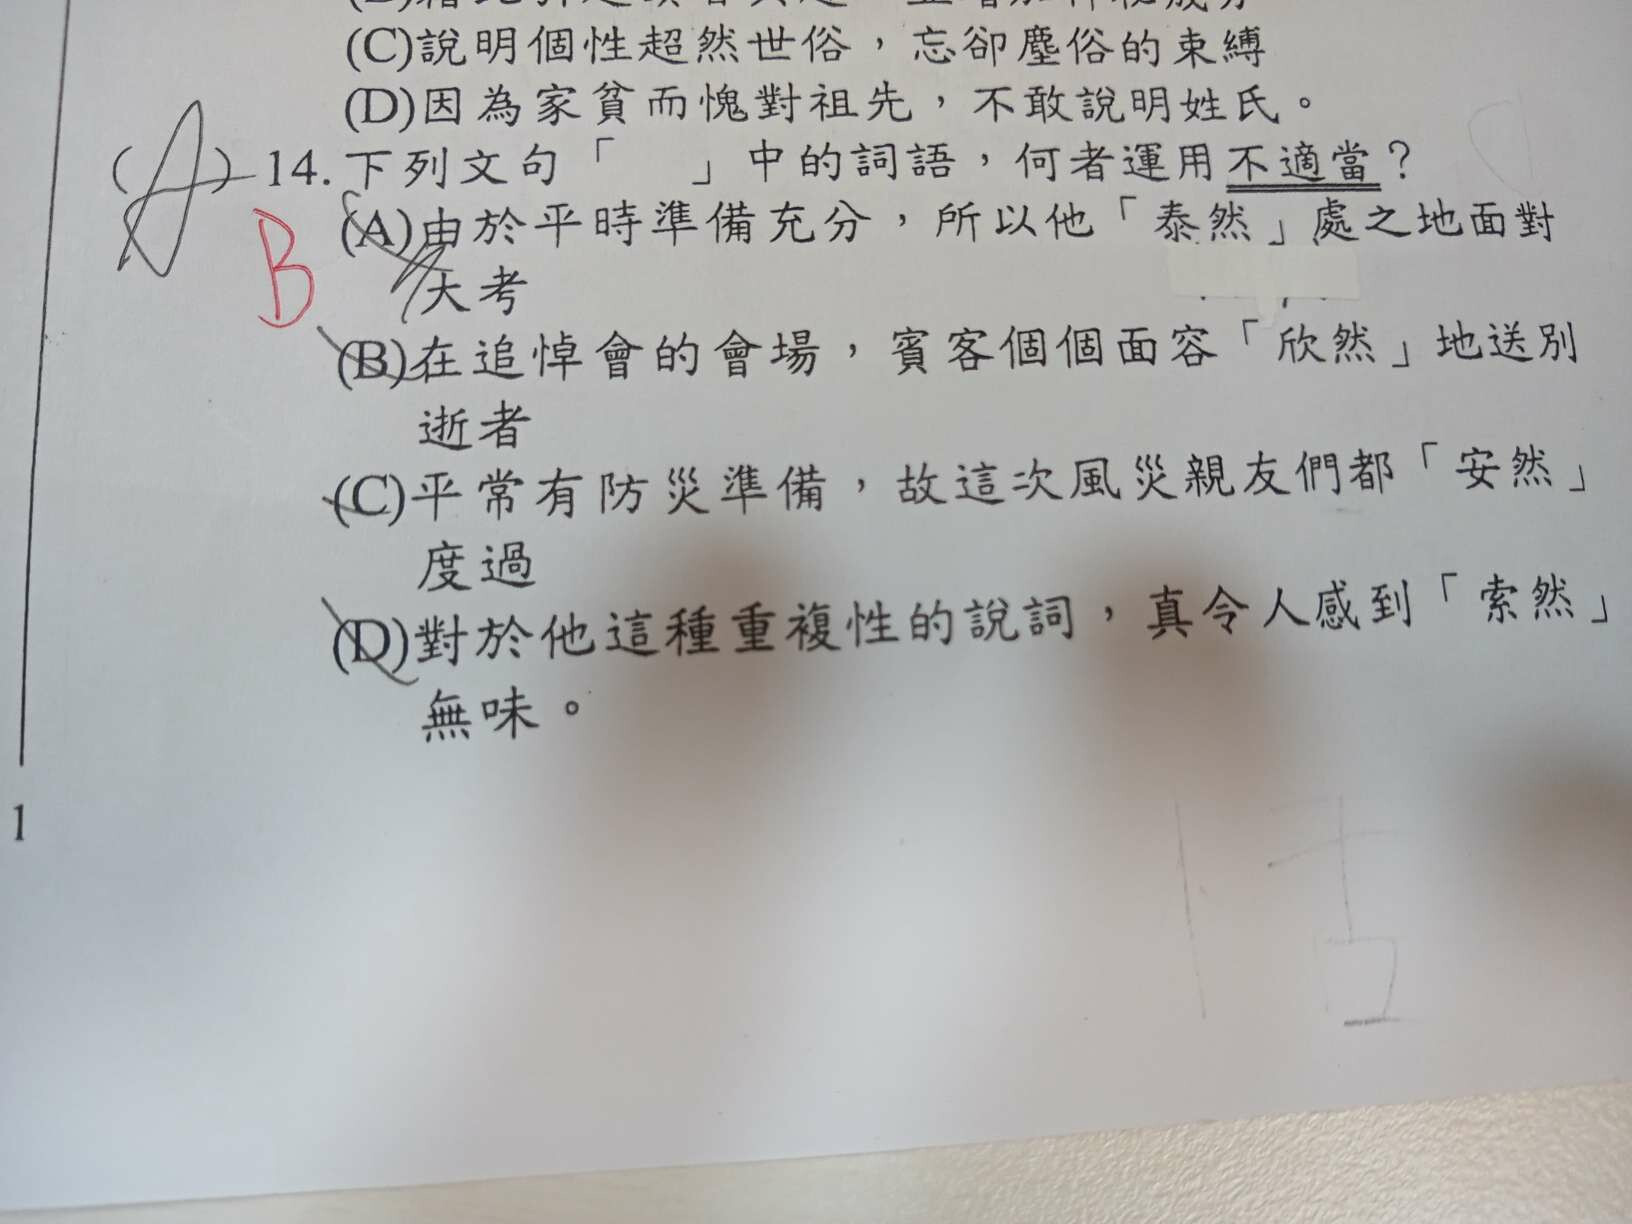 (C)說明個性超然世俗，忘卻塵俗的束縛
(D)因為家貧而愧對祖先，不敢說明姓氏。
(A) 14.下列文句「　」中的詞語，何者運用不適當？
B
(A)由於平時準備充分，所以他「泰然」處之地面對
大考
(B)在追悼會的會場，賓客個個面容「欣然」地送別
逝者
(C)平常有防災準備，故這次風災親友們都「安然」
度過
(D)對於他這種重複性的說詞，真令人感到「索然」
無味。
1